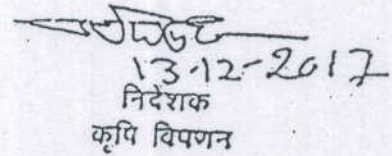 13-12-2017
निदेशक
कृषि विपणन